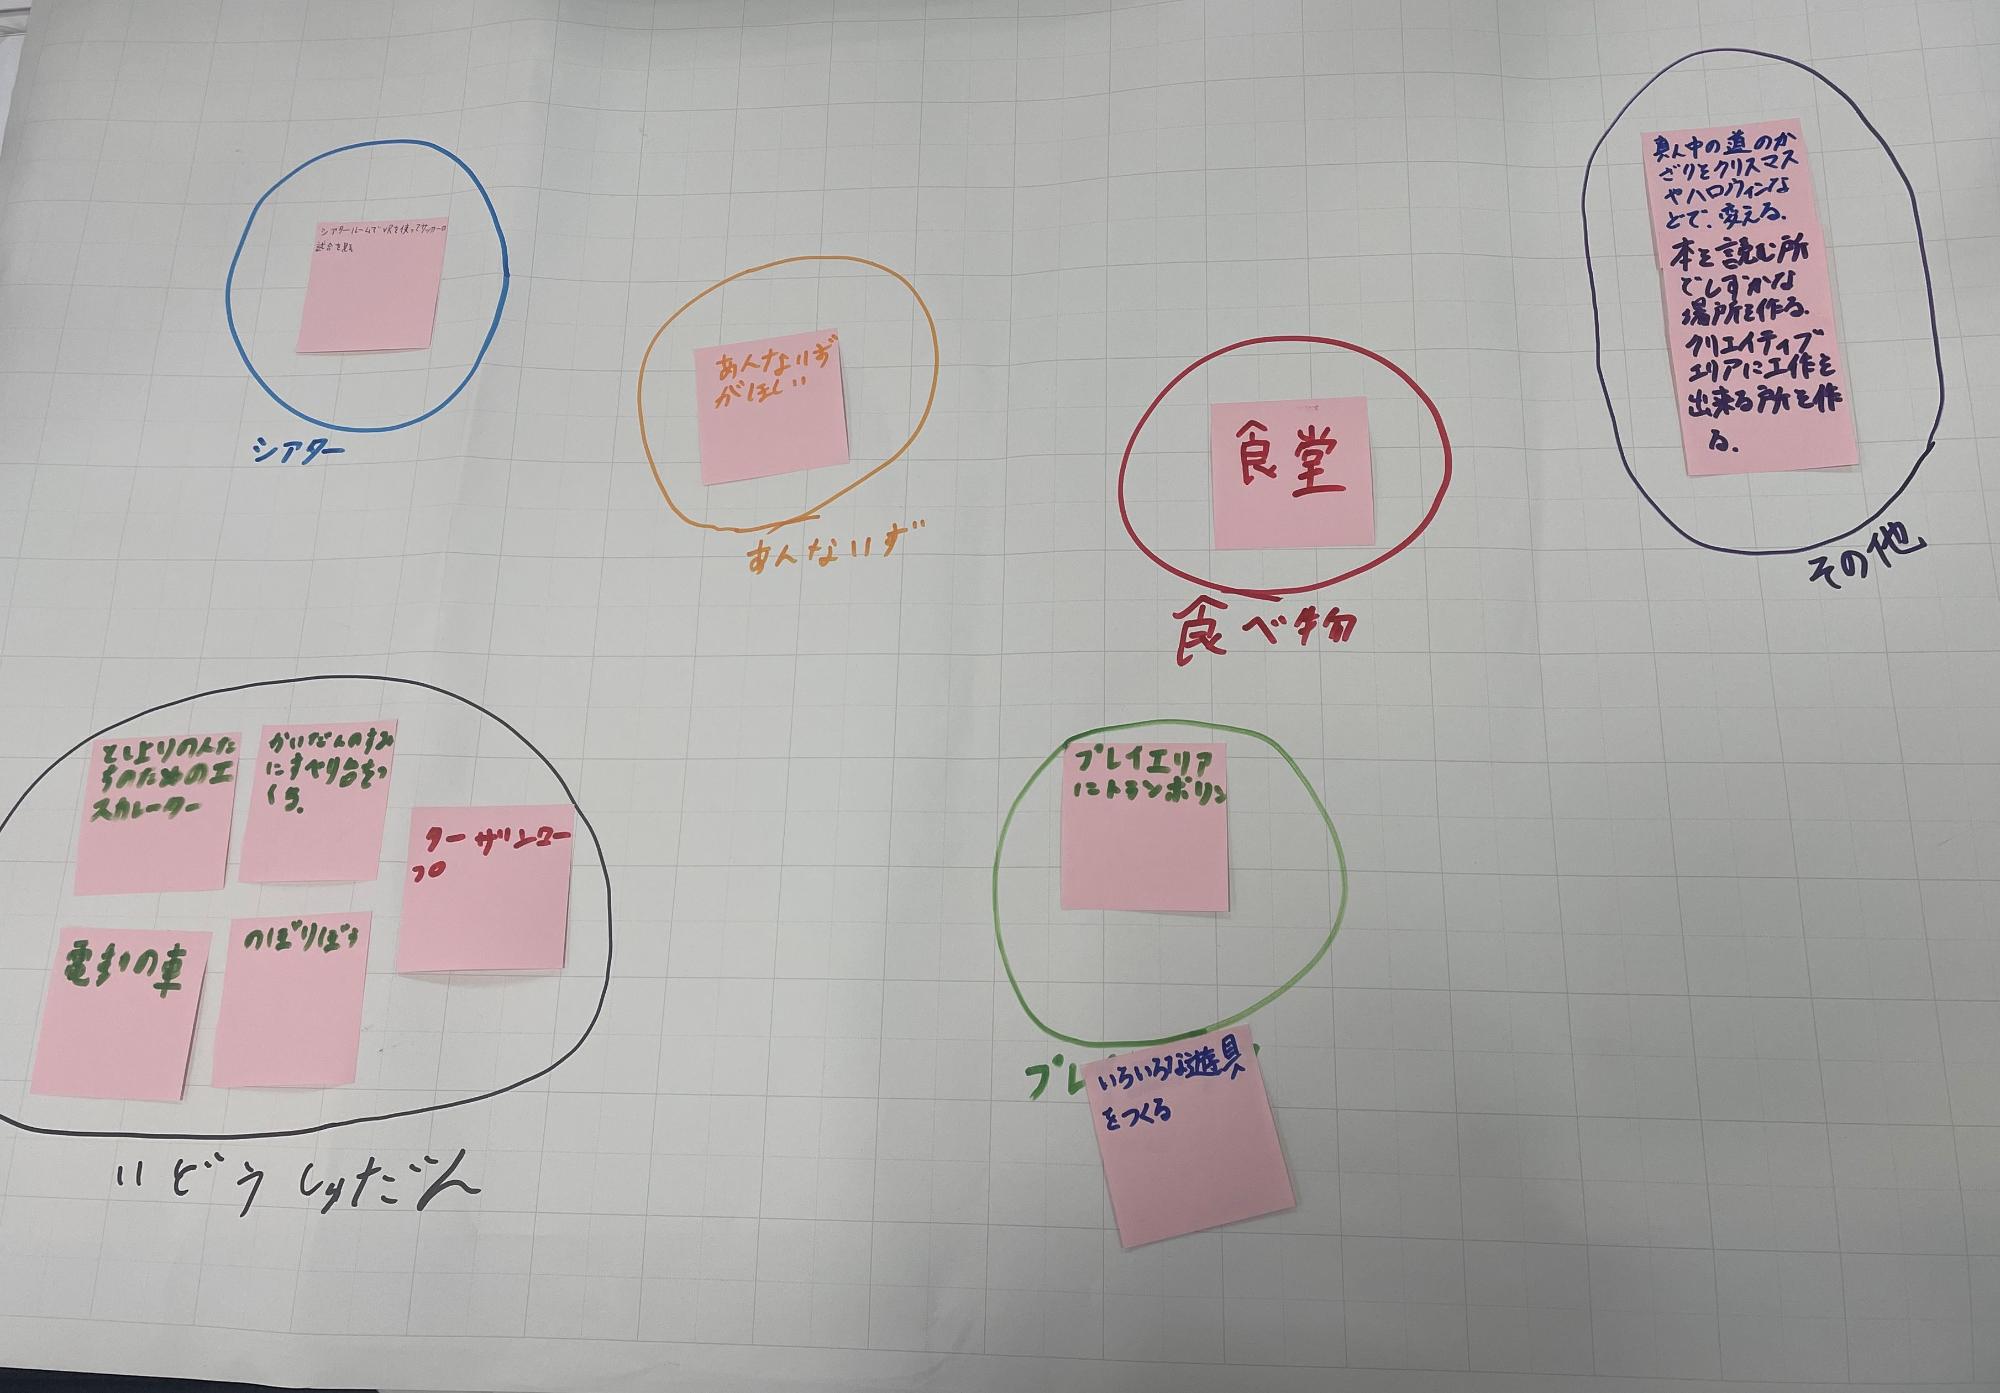 シアタールームでVRを使ってサッカーの
試合を見る
シアター
あんないず
がほしい
あんないず
食堂
食べ物
真ん中の道のか
ざりをクリスマス
やハロウィンな
どで、変える。
本を読む所
でしずかな
場所を作る。
クリエイティブ
エリアに工作を
出来る所を作
る。
その他
とし上りの人た
ちのための工
スカレーター
かいだんのすみ
にすべり台をつ
くる。
ターザンロー
プ
電動の車
のぼりぼう
いどうしゅだん
プレイエリア
にトランポリン
プレ
いろいろな遊具
をつくる